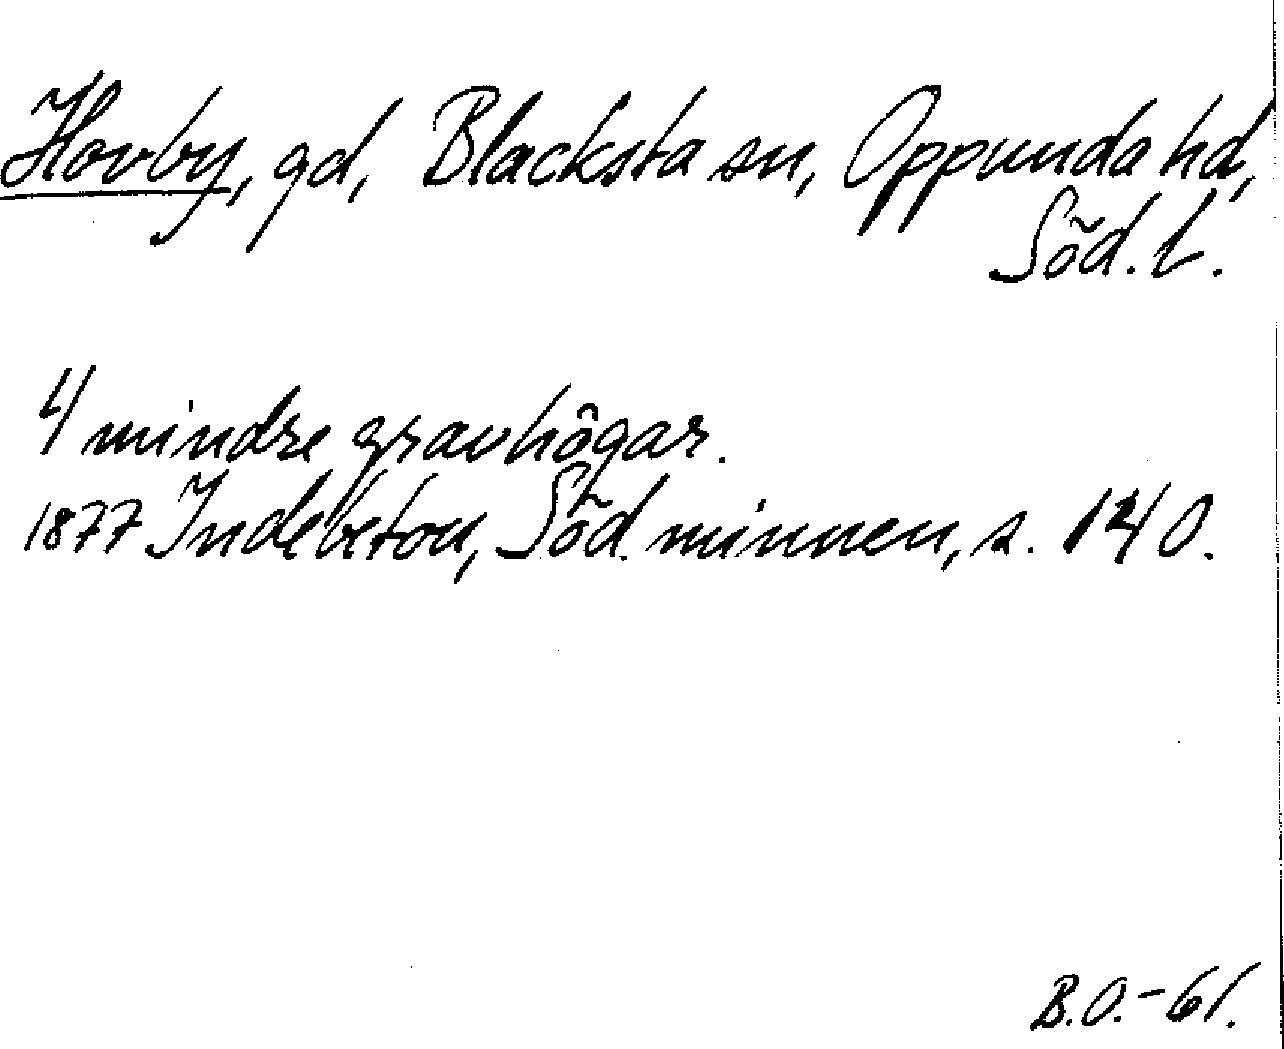 Hovby, gd, Blacksta sn, Oppunda hd,
Söd. l.
4 mindre gravhögar.
1877 Indebetou, Söd. minnen, s. 140.
B.O.-61.